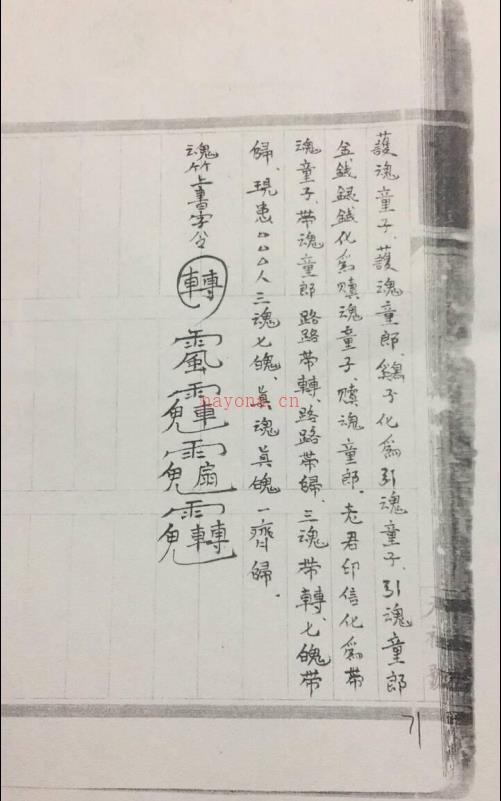 護魂童子、護魂童郎、鷄子化為引魂童子、引魂童郎
金錢銀錢化為贖魂童子、贖魂童郎、老君印信化為带
魂童子、带魂童郎、路路带轉、路路带歸、三魂带轉、七魄带
歸、現患△△△人三魂七魄、真魂真魄一齊歸。
魂竹上書字令
轉
nayona.cn
71